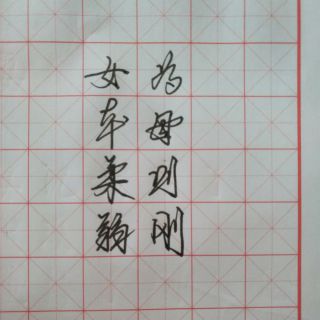 女本柔弱
为母则刚